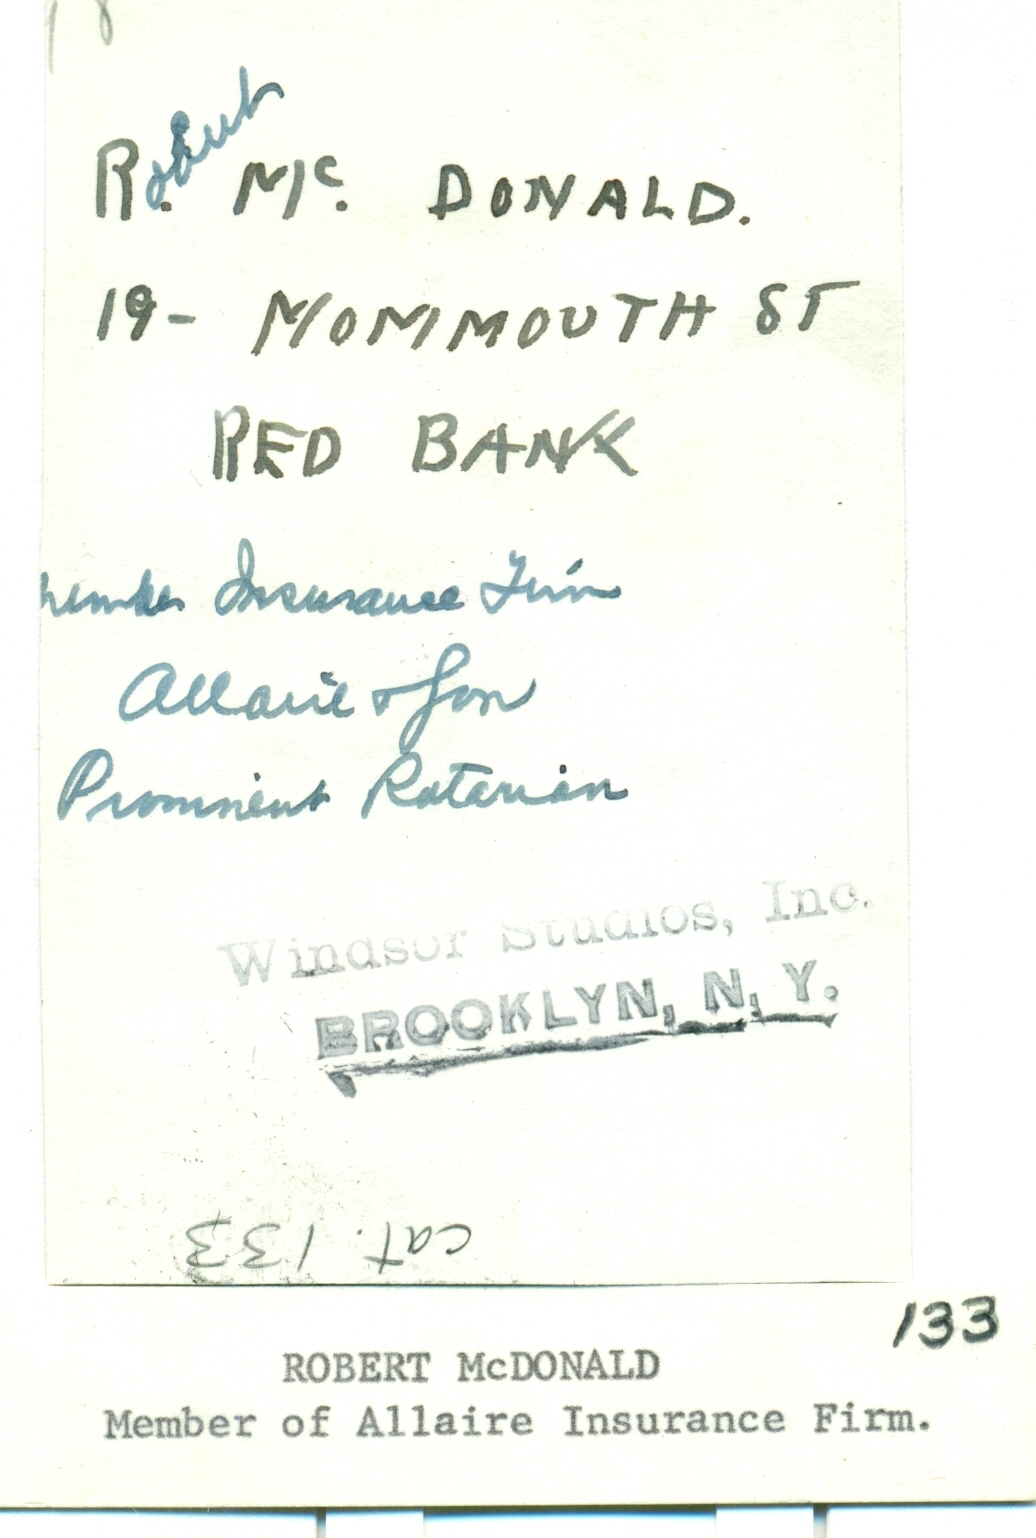 Robert
R. Mc. DONALD.
19- MONMOUTH ST
RED BANK
Member Insurance Firm
Allaire & Son
Prominent Rotarian
Windsor Studios, Inc.
BROOKLYN, N. Y.
cat. 133
133
ROBERT McDONALD
Member of Allaire Insurance Firm.